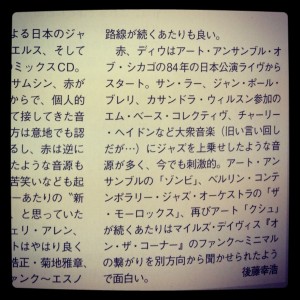 よる日本のジャ
エルス、そして
ミックスCD。
サムシン、赤が
からで、個人的
て接してきた音
方は意地でも認
るし、赤は逆に
たような音源も
苦笑いなども起
ーあたりの“新
、と思っていた
ェリ・アレン、
トはやはり良く
浩正・菊地雅章、
ァンク〜エスノ
路線が続くあたりも良い。
赤、ディウはアート・アンサンブル・オ
ブ・シカゴの84年の日本公演ライヴから
スタート。サン・ラー、ジャン・ポール・
ブレリ、カサンドラ・ウィルスン参加の
エム・ベース・コレクティヴ、チャーリ
ー・ヘイドンなど大衆音楽（旧い言い回し
だが…）にジャズを上乗せしたような音
源が多く、今でも刺激的。アート・アン
サンブルの「ゾンビ」、ベルリン・コンテ
ンポラリー・ジャズ・オーケストラの「ザ
・モーロックス」、再びアート「クシュ」
が続くあたりはマイルズ・デイヴィス『オ
ン・ザ・コーナー』のファンク〜ミニマル
の繋がりを別方向から聞かせられたよう
で面白い。
後藤幸浩